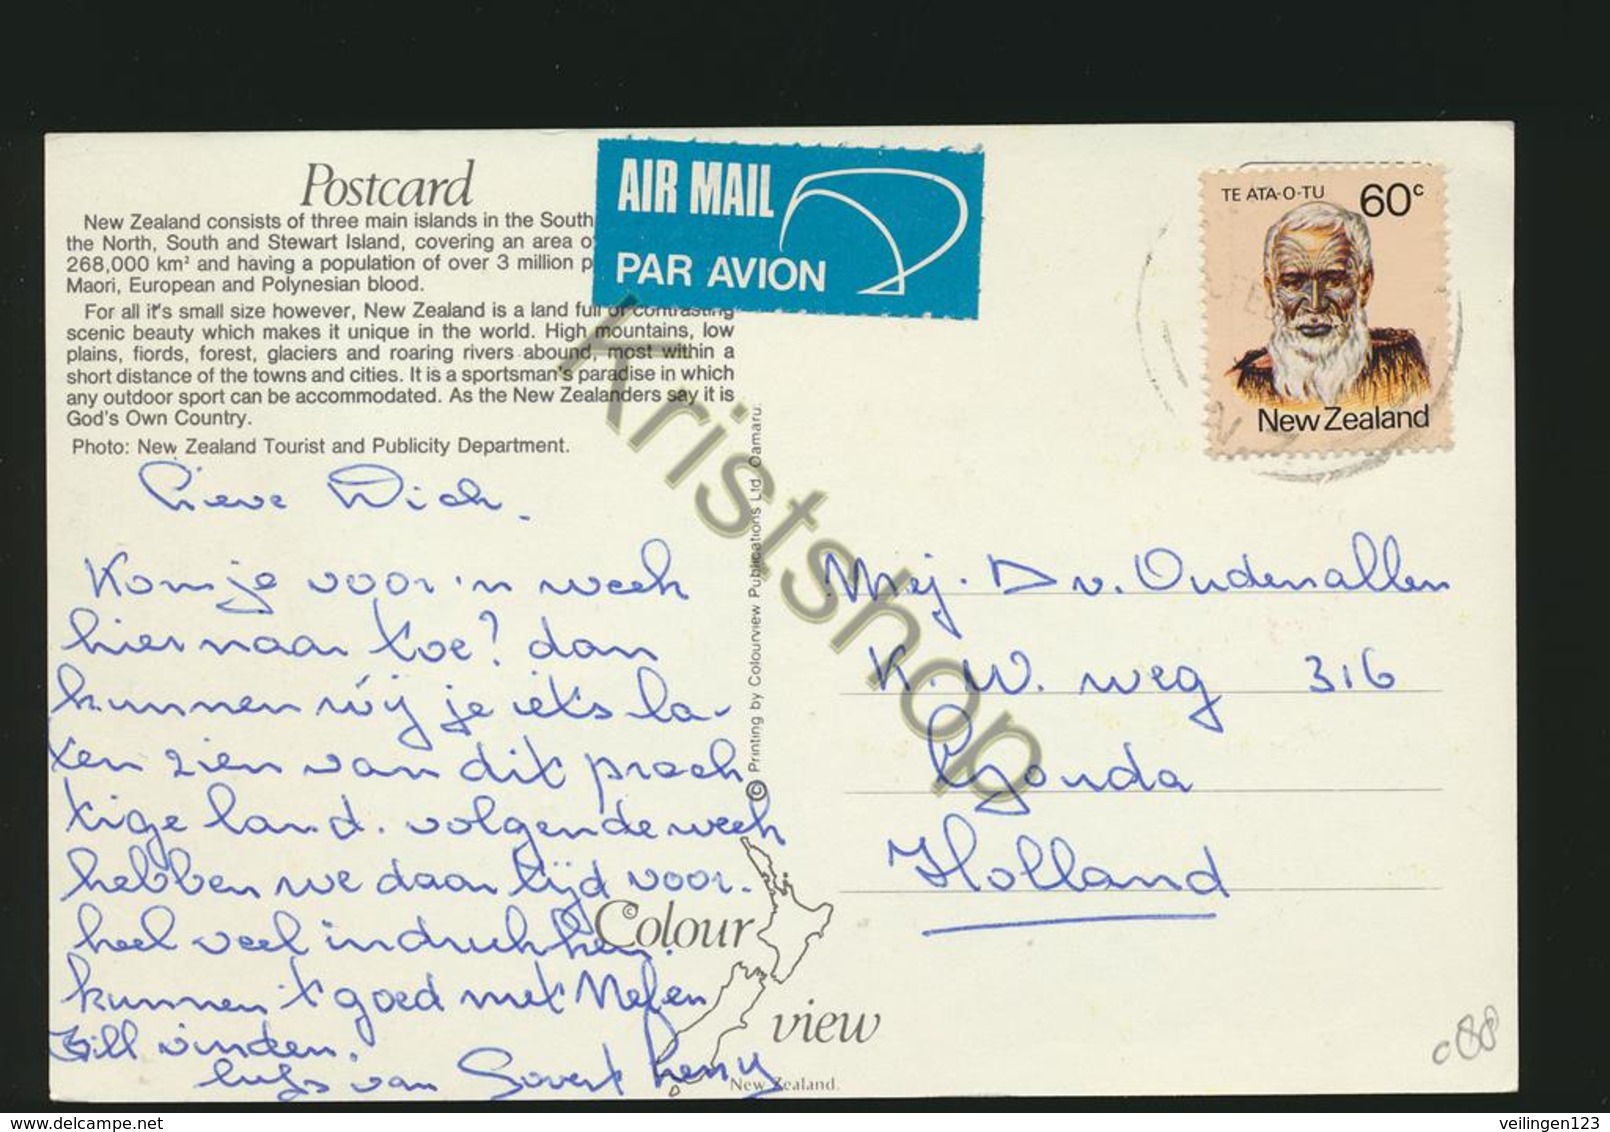 Postcard
New Zealand consists of three main islands in the South
the North, South and Stewart Island, covering an area of
268,000 km² and having a population of over 3 million p
Maori, European and Polynesian blood.
For all it's small size however, New Zealand is a land full of contrasting
scenic beauty which makes it unique in the world. High mountains, low
plains, fiords, forest, glaciers and roaring rivers abound, most within a
short distance of the towns and cities. It is a sportsman's paradise in which
any outdoor sport can be accommodated. As the New Zealanders say it is
God's Own Country.
Photo: New Zealand Tourist and Publicity Department.
AIR MAIL
PAR AVION
TE ATA-O-TU 60c
New Zealand
Lieve Dick.
Kom je voor 'n week
hier naar toe? dan
kunnen wij je iets la-
ten zien van dit prach
tige land. volgende week
hebben we daar tijd voor.
heel veel indrukken.
kunnen 't goed met Nel en
Bill vinden.
liefs van Govert Henny
Mej. D v. Oudenallen
K. W. weg 316
Gouda
Holland
© Printing by Colourview Publications Ltd. Oamaru.
Colour
view
New Zealand.
Kristshop
c88
delcampe.net
veilingen123